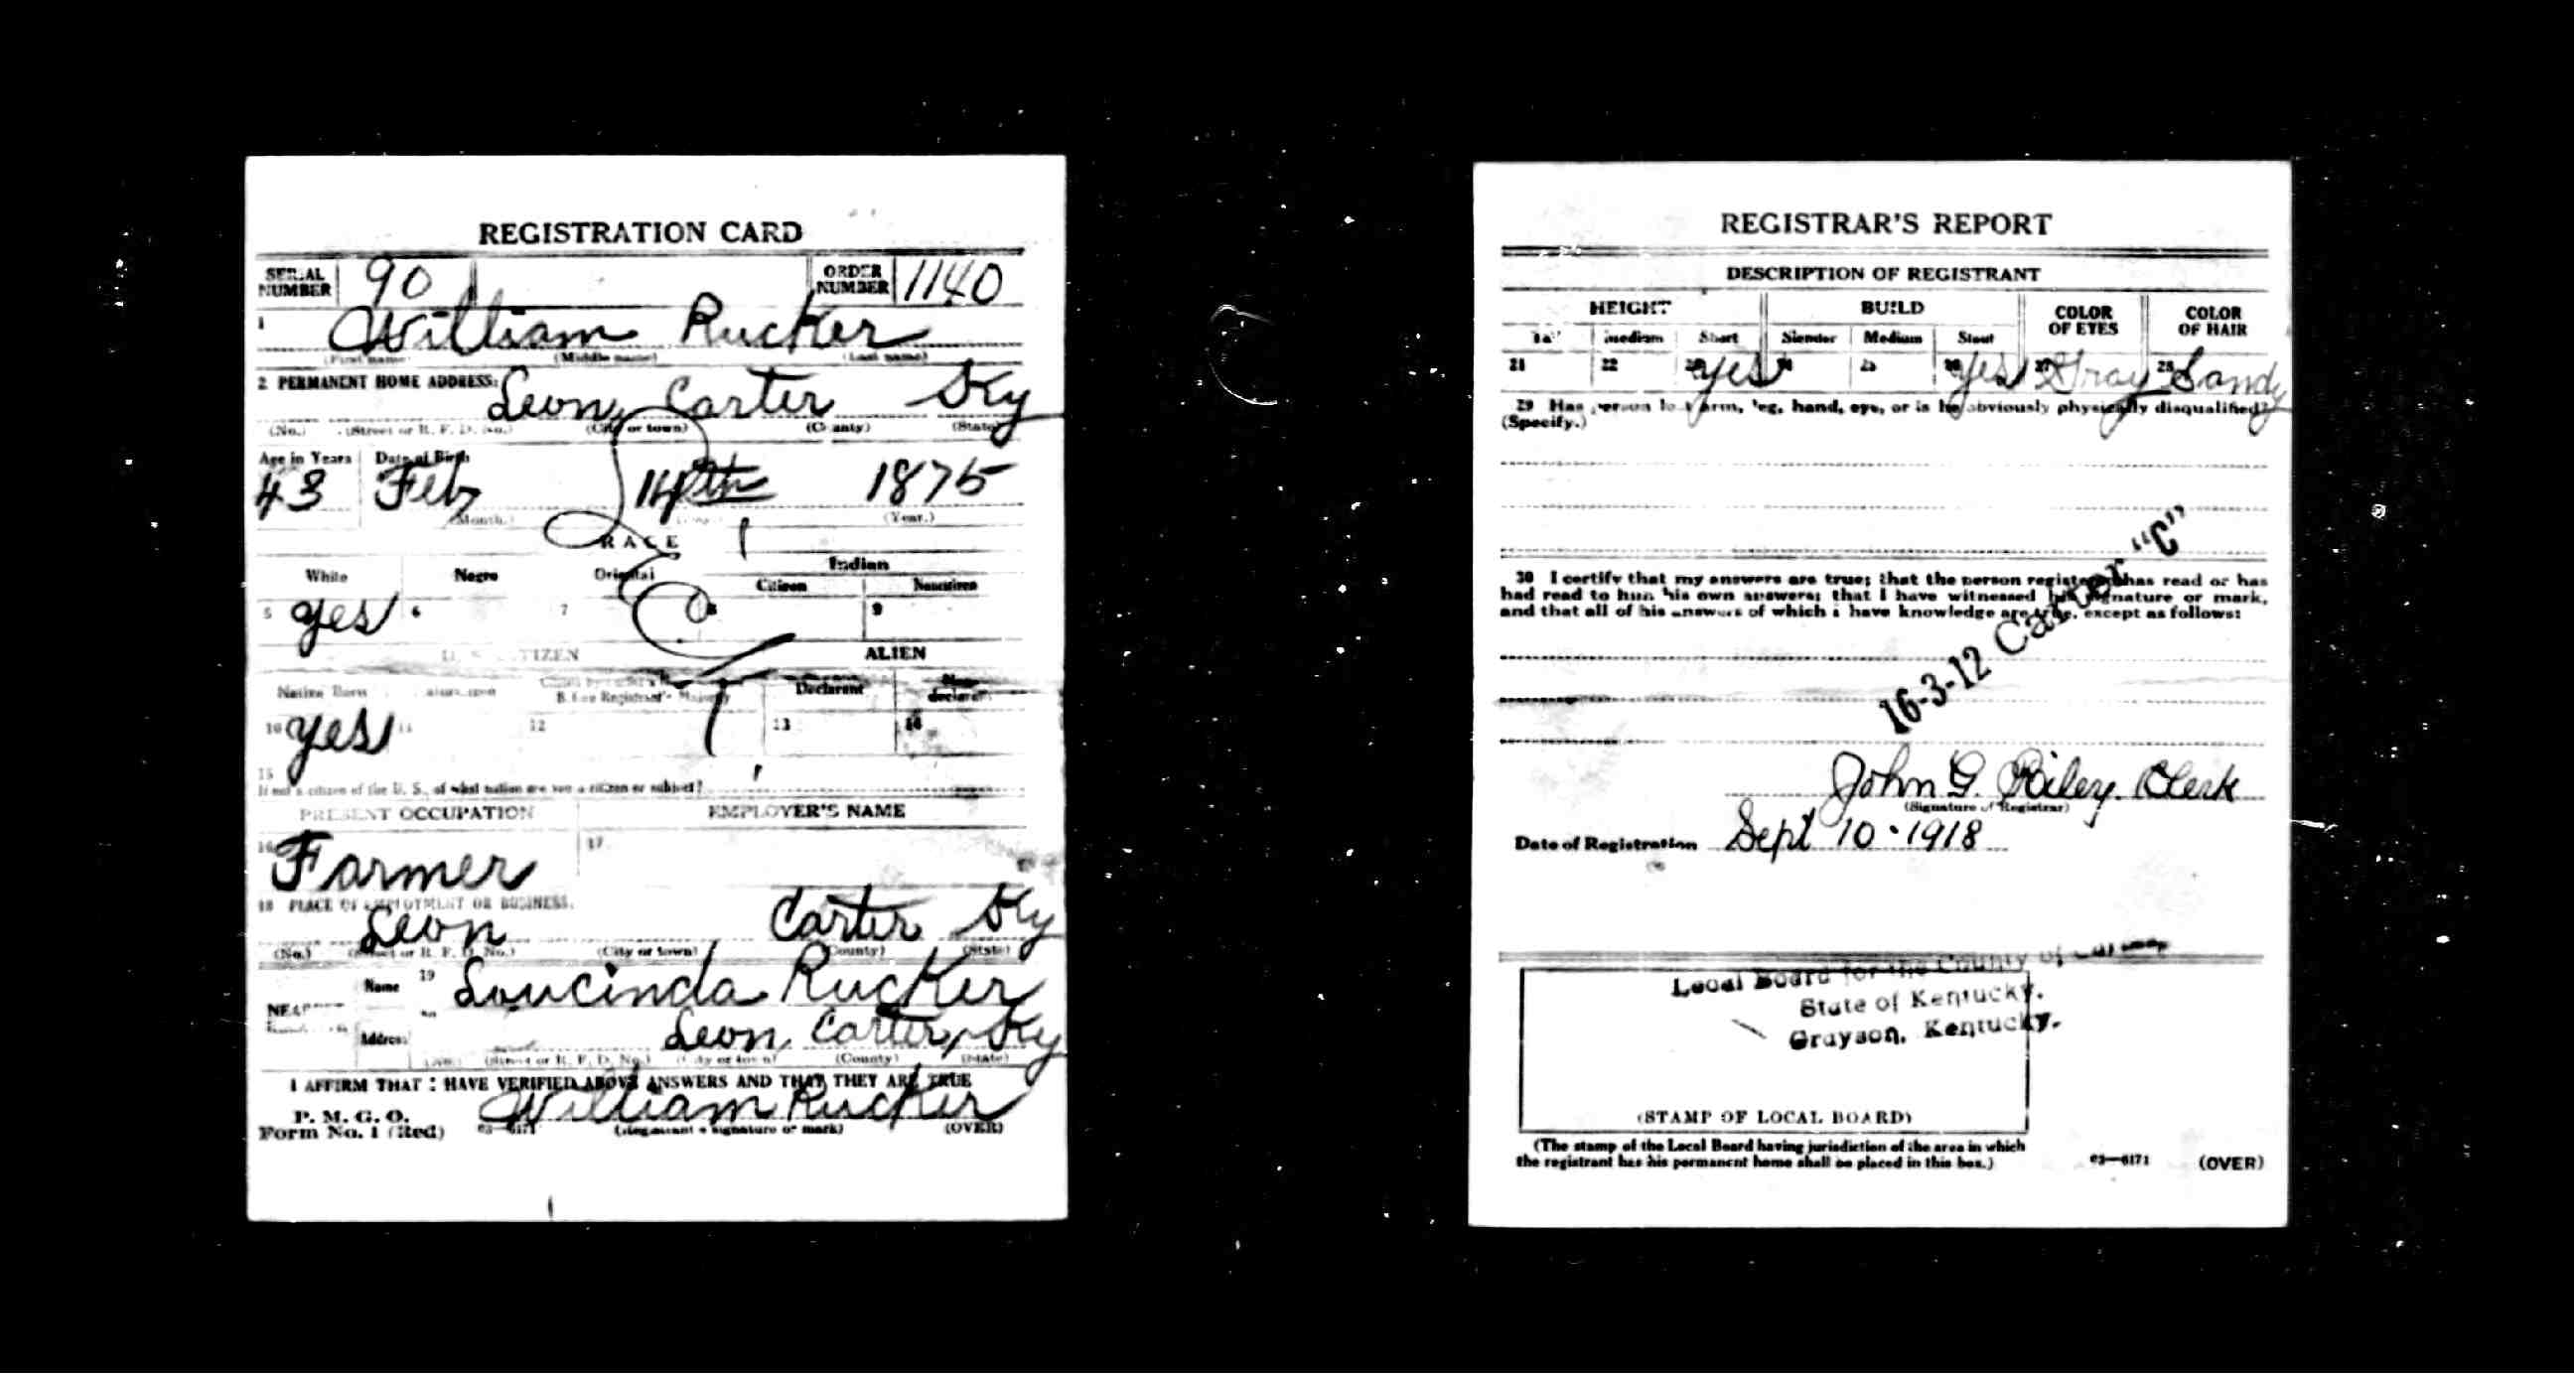 REGISTRATION CARD
SERIAL NUMBER 90 ORDER NUMBER 1140
1 William Rucker
(First name) (Middle name) (Last name)
2 PERMANENT HOME ADDRESS: Leon, Carter Ky
(No.) (Street or R. F. D. No.) (City or town) (County) (State)
Age in Years Date of Birth
43 Feb 14th 1875
(Month.) (Year.)
RACE
White Negro Oriental Indian
Citizen Noncitizen
5 yes 6 7 8 9
U. S. CITIZEN ALIEN
Native Born Declarant
10 yes 11 12 13 14
15
If not a citizen of the U. S., of what nation are you a citizen or subject?
PRESENT OCCUPATION EMPLOYER'S NAME
16 Farmer 17
18 PLACE OF EMPLOYMENT OR BUSINESS:
Leon Carter Ky
(No.) (Street or R. F. D. No.) (City or town) (County) (State)
Name 19 Loucinda Rucker
Address Leon, Carter, Ky
(No.) (Street or R. F. D. No.) (City or town) (County) (State)
I AFFIRM THAT I HAVE VERIFIED ABOVE ANSWERS AND THAT THEY ARE TRUE
P. M. G. O.
Form No. 1 (Red) 03—6171 William Rucker
(Registrant's signature or mark) (OVER)
REGISTRAR'S REPORT
DESCRIPTION OF REGISTRANT
HEIGHT BUILD COLOR OF EYES COLOR OF HAIR
Tall Medium Short Slender Medium Stout
21 22 23 yes 24 25 26 yes 27 Gray 28 Sandy
29 Has person lost arm, leg, hand, eye, or is he obviously physically disqualified?
(Specify.)
30 I certify that my answers are true; that the person registered has read or has
had read to him his own answers; that I have witnessed his signature or mark,
and that all of his answers of which I have knowledge are true, except as follows:
16-3-12 Carter "C"
John G. Riley. Clerk
(Signature of Registrar)
Date of Registration Sept 10 - 1918
Local Board for the County of
State of Kentucky.
Grayson, Kentucky.
(STAMP OF LOCAL BOARD)
(The stamp of the Local Board having jurisdiction of the area in which
the registrant has his permanent home shall be placed in this box.)
03—6171 (OVER)